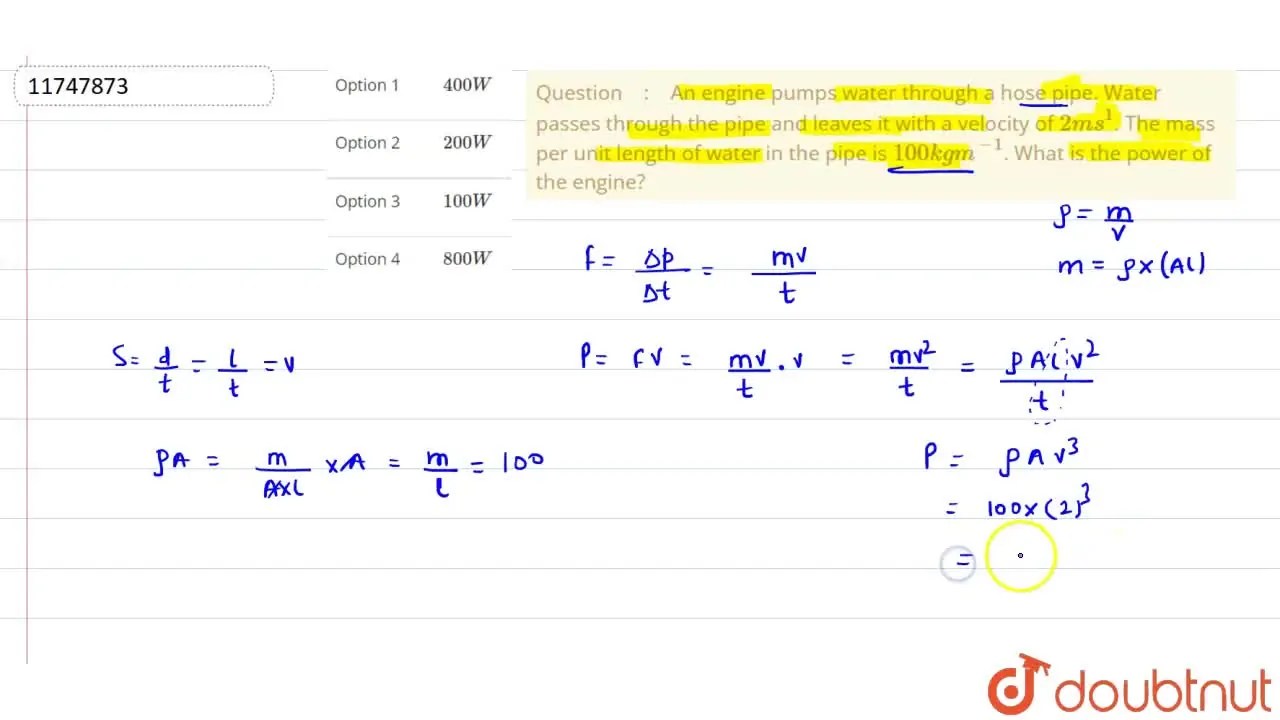 11747873
Option 1 400W
Option 2 200W
Option 3 100W
Option 4 800W
Question : An engine pumps water through a hose pipe. Water
passes through the pipe and leaves it with a velocity of 2ms¹. The mass
per unit length of water in the pipe is 100kgm⁻¹. What is the power of
the engine?
ρ = m/v
m = ρ × (Al)
F = Δp/Δt = mv/t
S = d/t = l/t = v
P = FV = mv/t . v = mv²/t = ρAlv²/t
ρA = m/(A×l) × A = m/l = 100
P = ρAv³
= 100×(2)³
=
doubtnut